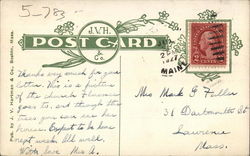 5-783-
J.V.H.
& Co.
POST CARD
Pub. by J. V. Hartman & Co., Boston, Mass.
MAINE
Thanks very much for your
letter. This is a picture
of the church Florence
goes to, and through the
trees you can see her
house. Expect to be home
next week. All well.
With love Mrs A.
Mrs Mark G. Fuller
31 Dartmouth St
Lawrence
Mass.